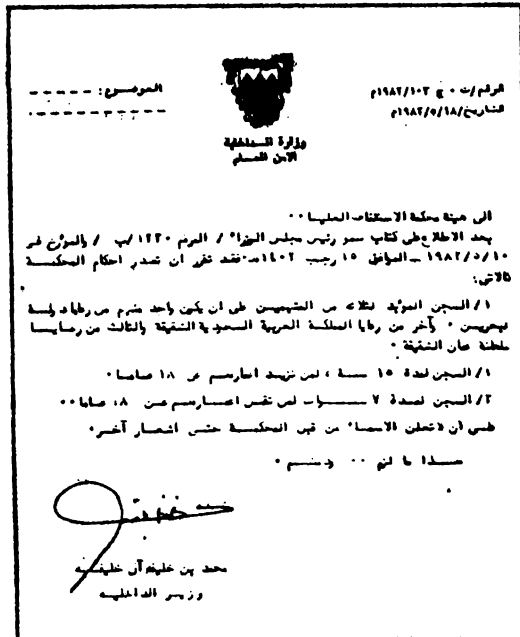 الرقم/ت ٠ ج ١٩٨٢/١٠٣م
التاريخ/١٩٨٢/٥/١٨م
الموضوع: - - - - -
وزارة الداخلية
الامن العام
الى هيئة محكمة الاستئناف العليا ٠٠
بعد الاطلاع على كتاب سمو رئيس مجلس الوزراء / المرقم ١٢٣٠/ب / والمؤرخ في
١٩٨٢/٥/١٠ ـ الموافق ١٥ رجب ١٤٠٢هـ فقد تقرر ان تصدر احكام المحكمة
كالاتي:
١/ السجن المؤبد لثلاثة من المتهمين على ان يكون واحد منهم من رعايا دولة
البحرين ٠ وآخر من رعايا المملكة العربية السعودية الشقيقة والثالث من رعايا
سلطنة عمان الشقيقة ٠
١/ السجن لمدة ١٥ سنة ، لمن تزيد اعمارهم عن ١٨ عاما ٠
٢/ السجن لمدة ٧ سنوات لمن تقل اعمارهم عن ١٨ عاما ٠٠
على ان لا تعلن الاسماء من قبل المحكمة حتى اشعار آخر ٠
هذا ما لزم ٠٠ ودمتم ٠
محمد بن خليفة آل خليفة
وزير الداخلية